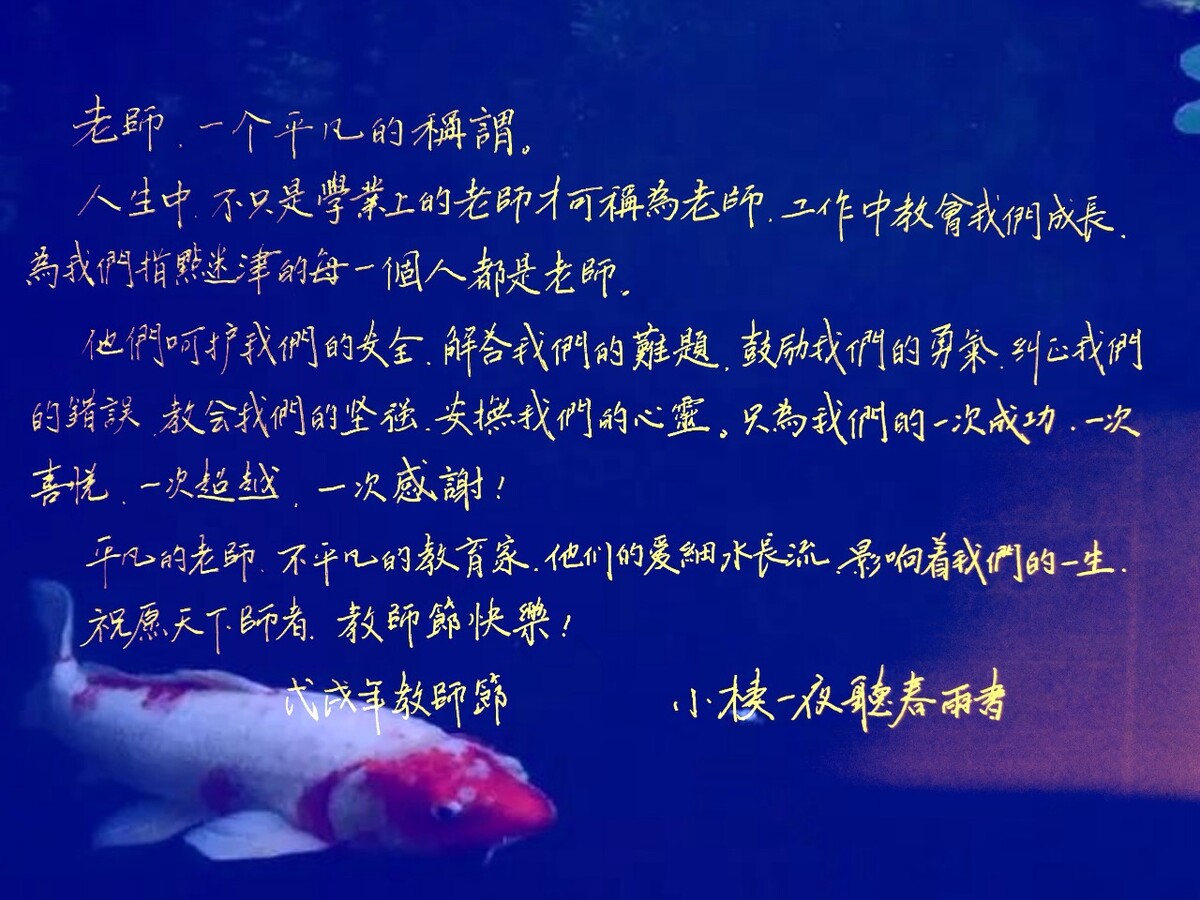 老師、一个平凡的稱謂。
人生中、不只是學業上的老師才可稱為老師、工作中教會我們成長、
為我們指點迷津的每一個人都是老師。
他們呵护我們的安全、解答我們的難題、鼓励我們的勇氣、纠正我們
的錯誤、教会我們的坚强、安撫我們的心靈。只為我們的一次成功、一次
喜悅、一次超越、一次感謝!
平凡的老師、不平凡的教育家、他们的爱細水長流、影响着我們的一生、
祝愿天下師者、教師節快樂!
戊戌年教師節 小楼一夜聽春雨書